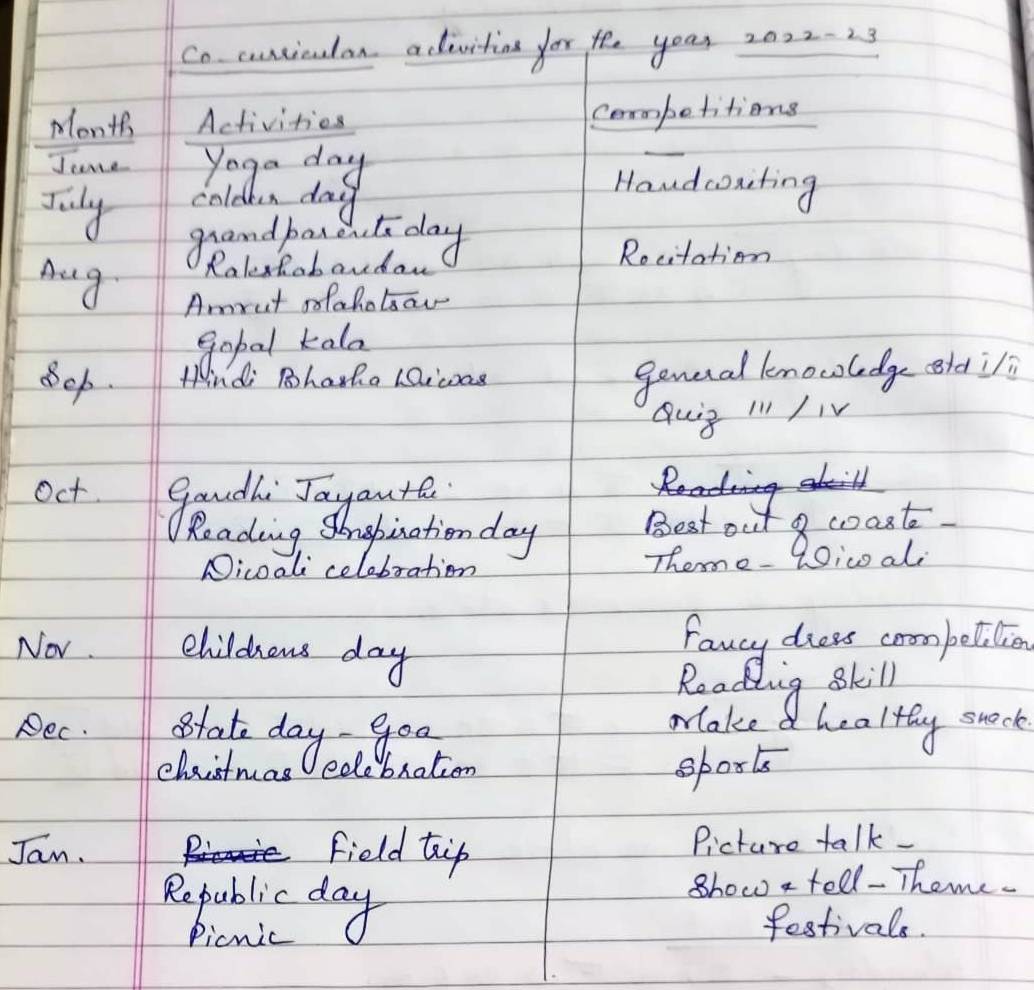 Co-curricular activities for the year 2022-23
Month Activities Competitions
June Yoga day —
July colour day Handwriting
grandparents day
Aug. Rakshabandan Recitation
Amrut Mahotsav
Gopal kala
Sep. Hindi Bhasha Diwas General knowledge std i/ii
Quiz III / IV
Oct. Gandhi Jayanthi. Reading skill
Reading Inspiration day Best out of waste -
Diwali celebration Theme - Diwali
Nov. Childrens day Fancy dress competition
Reading Skill
Dec. State day - Goa Make a healthy snack.
christmas celebration sports
Jan. Picnic Field trip Picture talk -
Republic day Show & tell - Theme -
Picnic festivals.